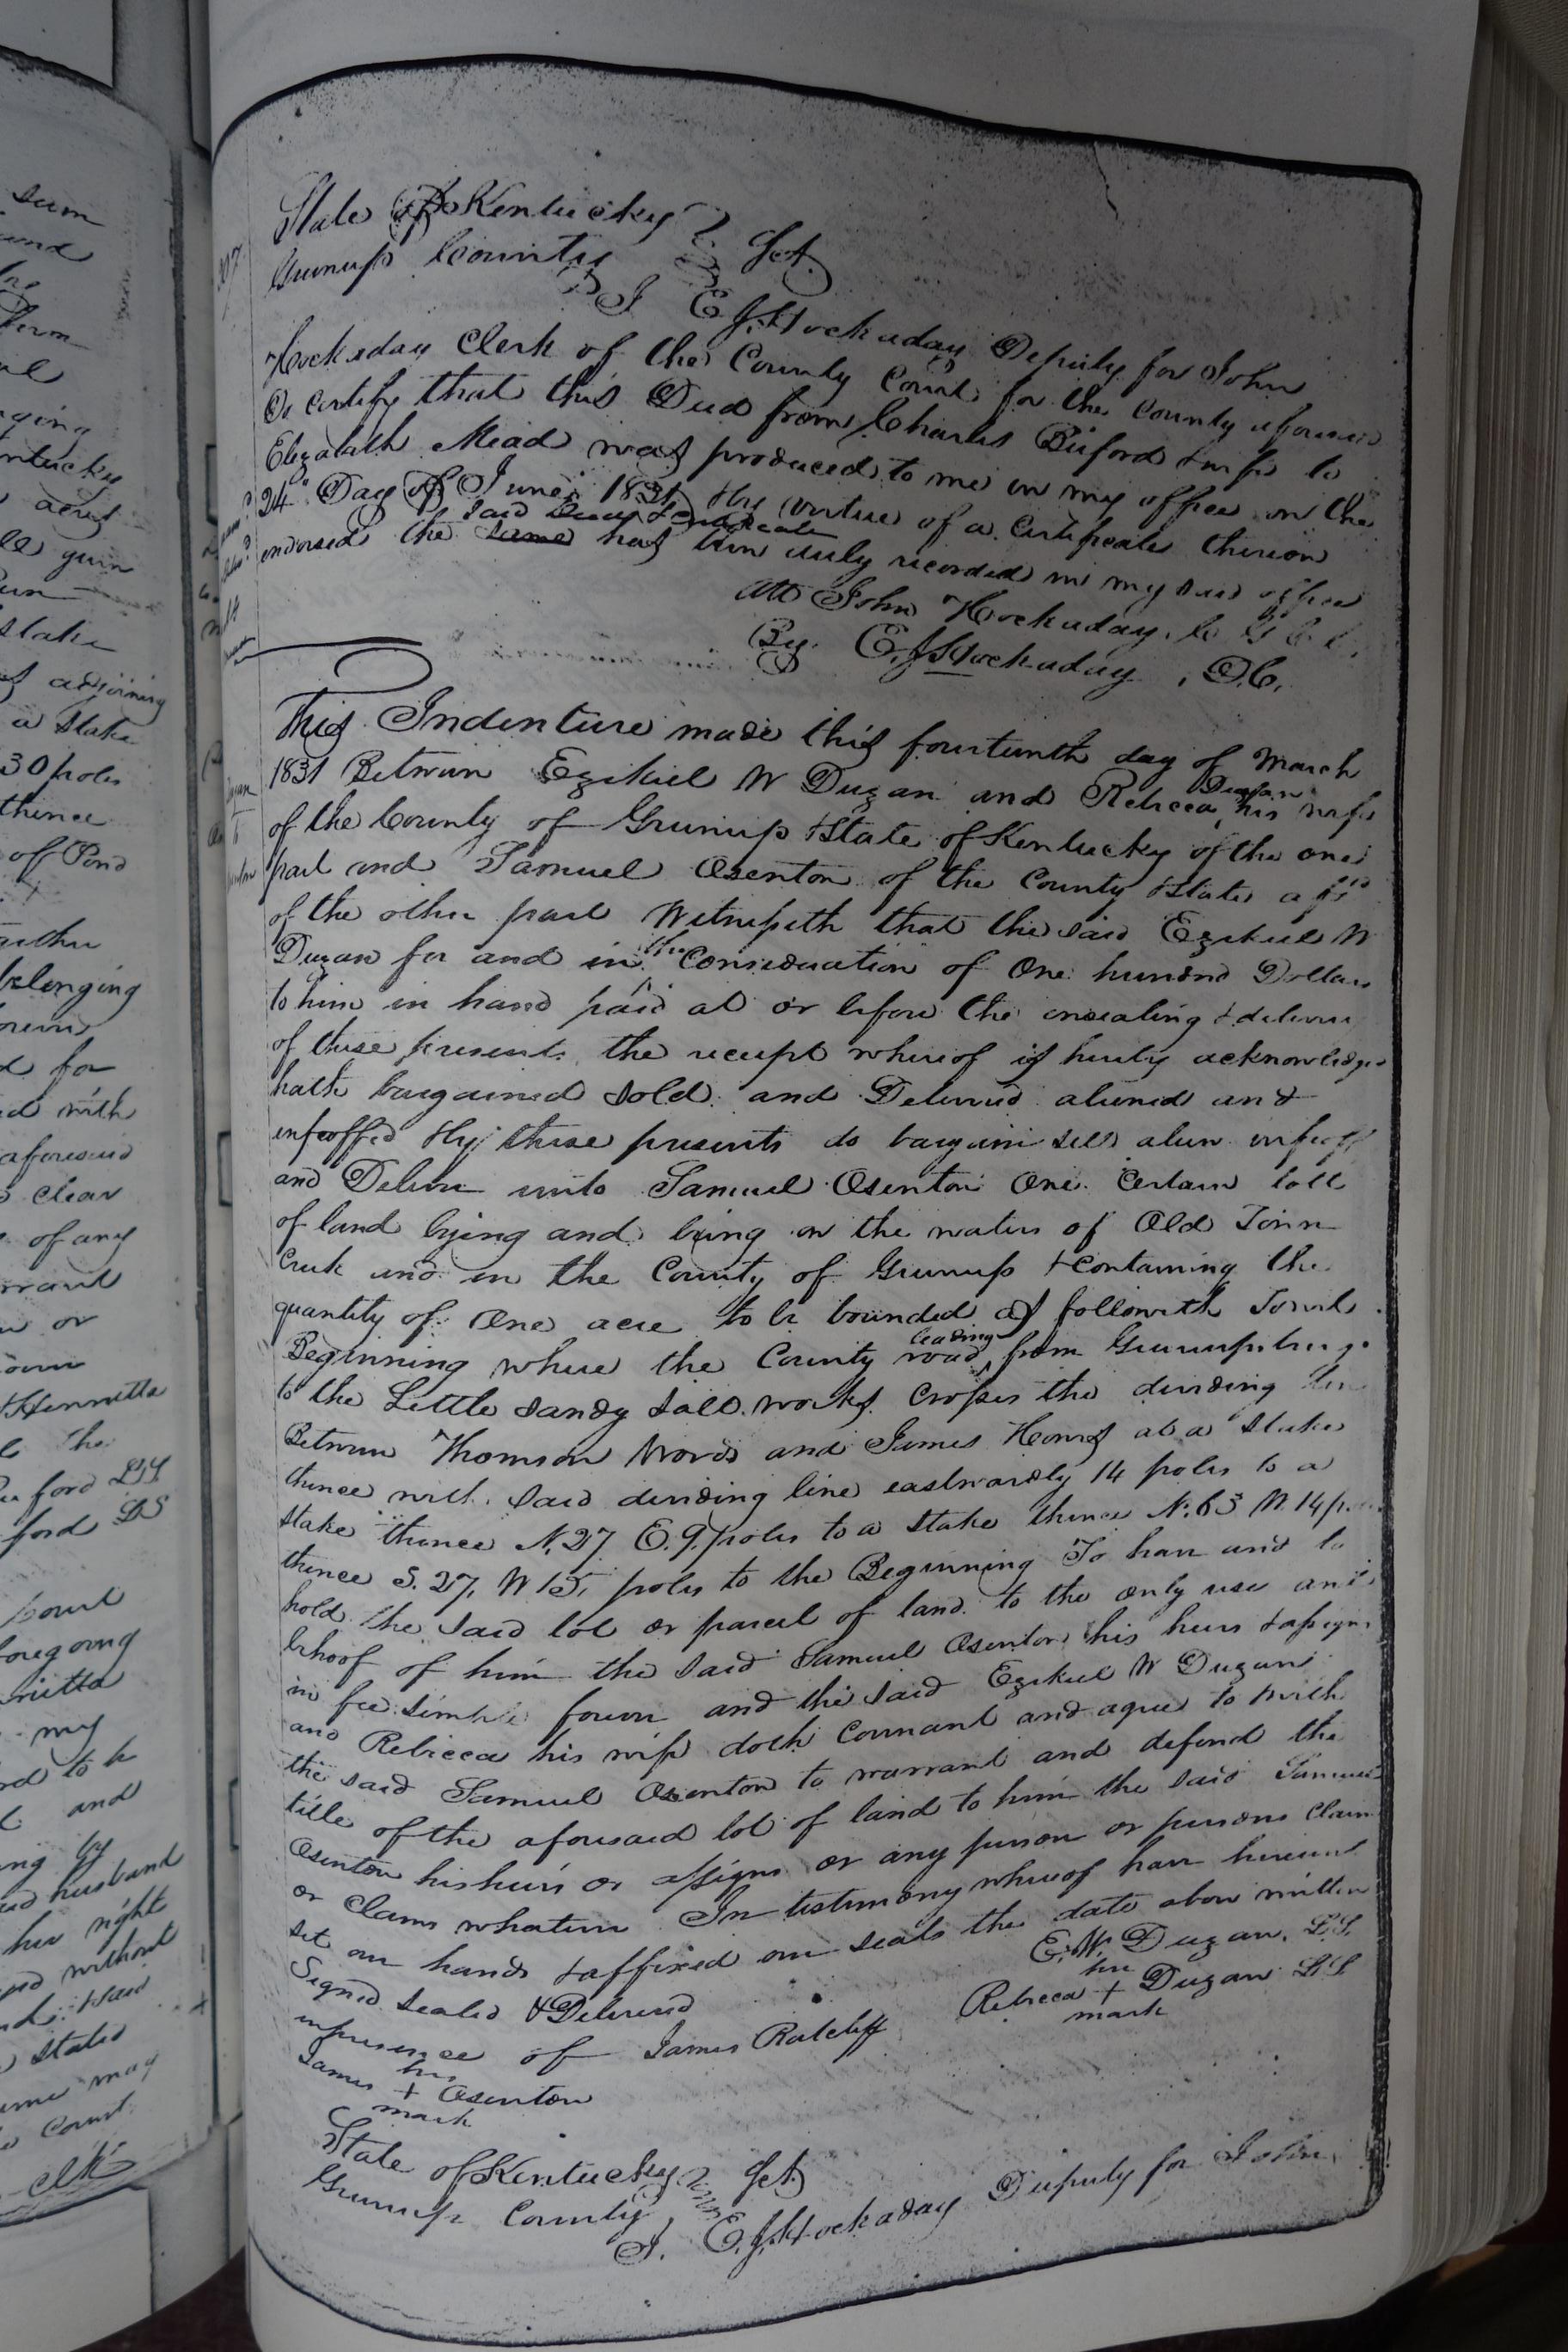 State of Kentucky
Greenup County Sct.
I E. J. Hockaday Deputy for John
Hockaday Clerk of the County Court for the County aforesaid
Do certify that this Deed from Charles Buford & wife to
Elizabeth Mead was produced to me in my office on the
24th Day of June 1831 & by virtue of a Certificate thereon
said Certificate
endorsed the same has been duly recorded in my said office
Att John Hockaday, C G C C.
By. E. J. Hockaday, D.C.
This Indenture made this fourteenth day of March
1831 Between Ezekiel W Dugan and Rebecca Dugan his wife
of the County of Greenup & State of Kentucky of the one
part and Samuel Osenton of the County & State afsd
of the other part Witnesseth that the said Ezekiel W
Dugan for and in the Consideration of One hundred Dollars
to him in hand paid at or before the ensealing & delivery
of these presents the receipt whereof is hereby acknowledged
hath bargained Sold and Delivered aliened and
enfeoffed & by these presents do bargain sell alien enfeoff
and Deliver unto Samuel Osenton One Certain lott
of land lying and being on the waters of Old Town
Creek and in the County of Greenup & Containing the
quantity of One acre to be bounded as followeth Towit
Beginning where the County road leading from Greenupsburg
to the Little Sandy Salt works Crosses the dividing line
Between Thomson Word and James Howes at a Stake
thence with said dividing line eastwardly 14 poles to a
stake thence N. 27 E. 9 poles to a stake thence N. 63 W. 14 po
thence S. 27, W 15, poles to the Beginning To have and to
hold the said lot or parcel of land to the only use and
behoof of him the said Samuel Osenton his heirs & assigns
in fee simple forever and the said Ezekiel W Dugan
and Rebecca his wife doth Covenant and agree to with
the said Samuel Osenton to warrant and defend the
title of the aforesaid lot of land to him the said Samuel
Osenton his heirs or assigns or any person or persons Claim
or Claims whatever In testimony whereof have hereunto
set our hands & affixed our seals the date above written
Signed Sealed & Delivered E. W. Dugan. L.S.
in presence of James Ratcliff Rebecca her + mark Dugan LS
James his + mark Osenton
State of Kentucky
Greenup County, Sct
I. E. J. Hockaday Deputy for John